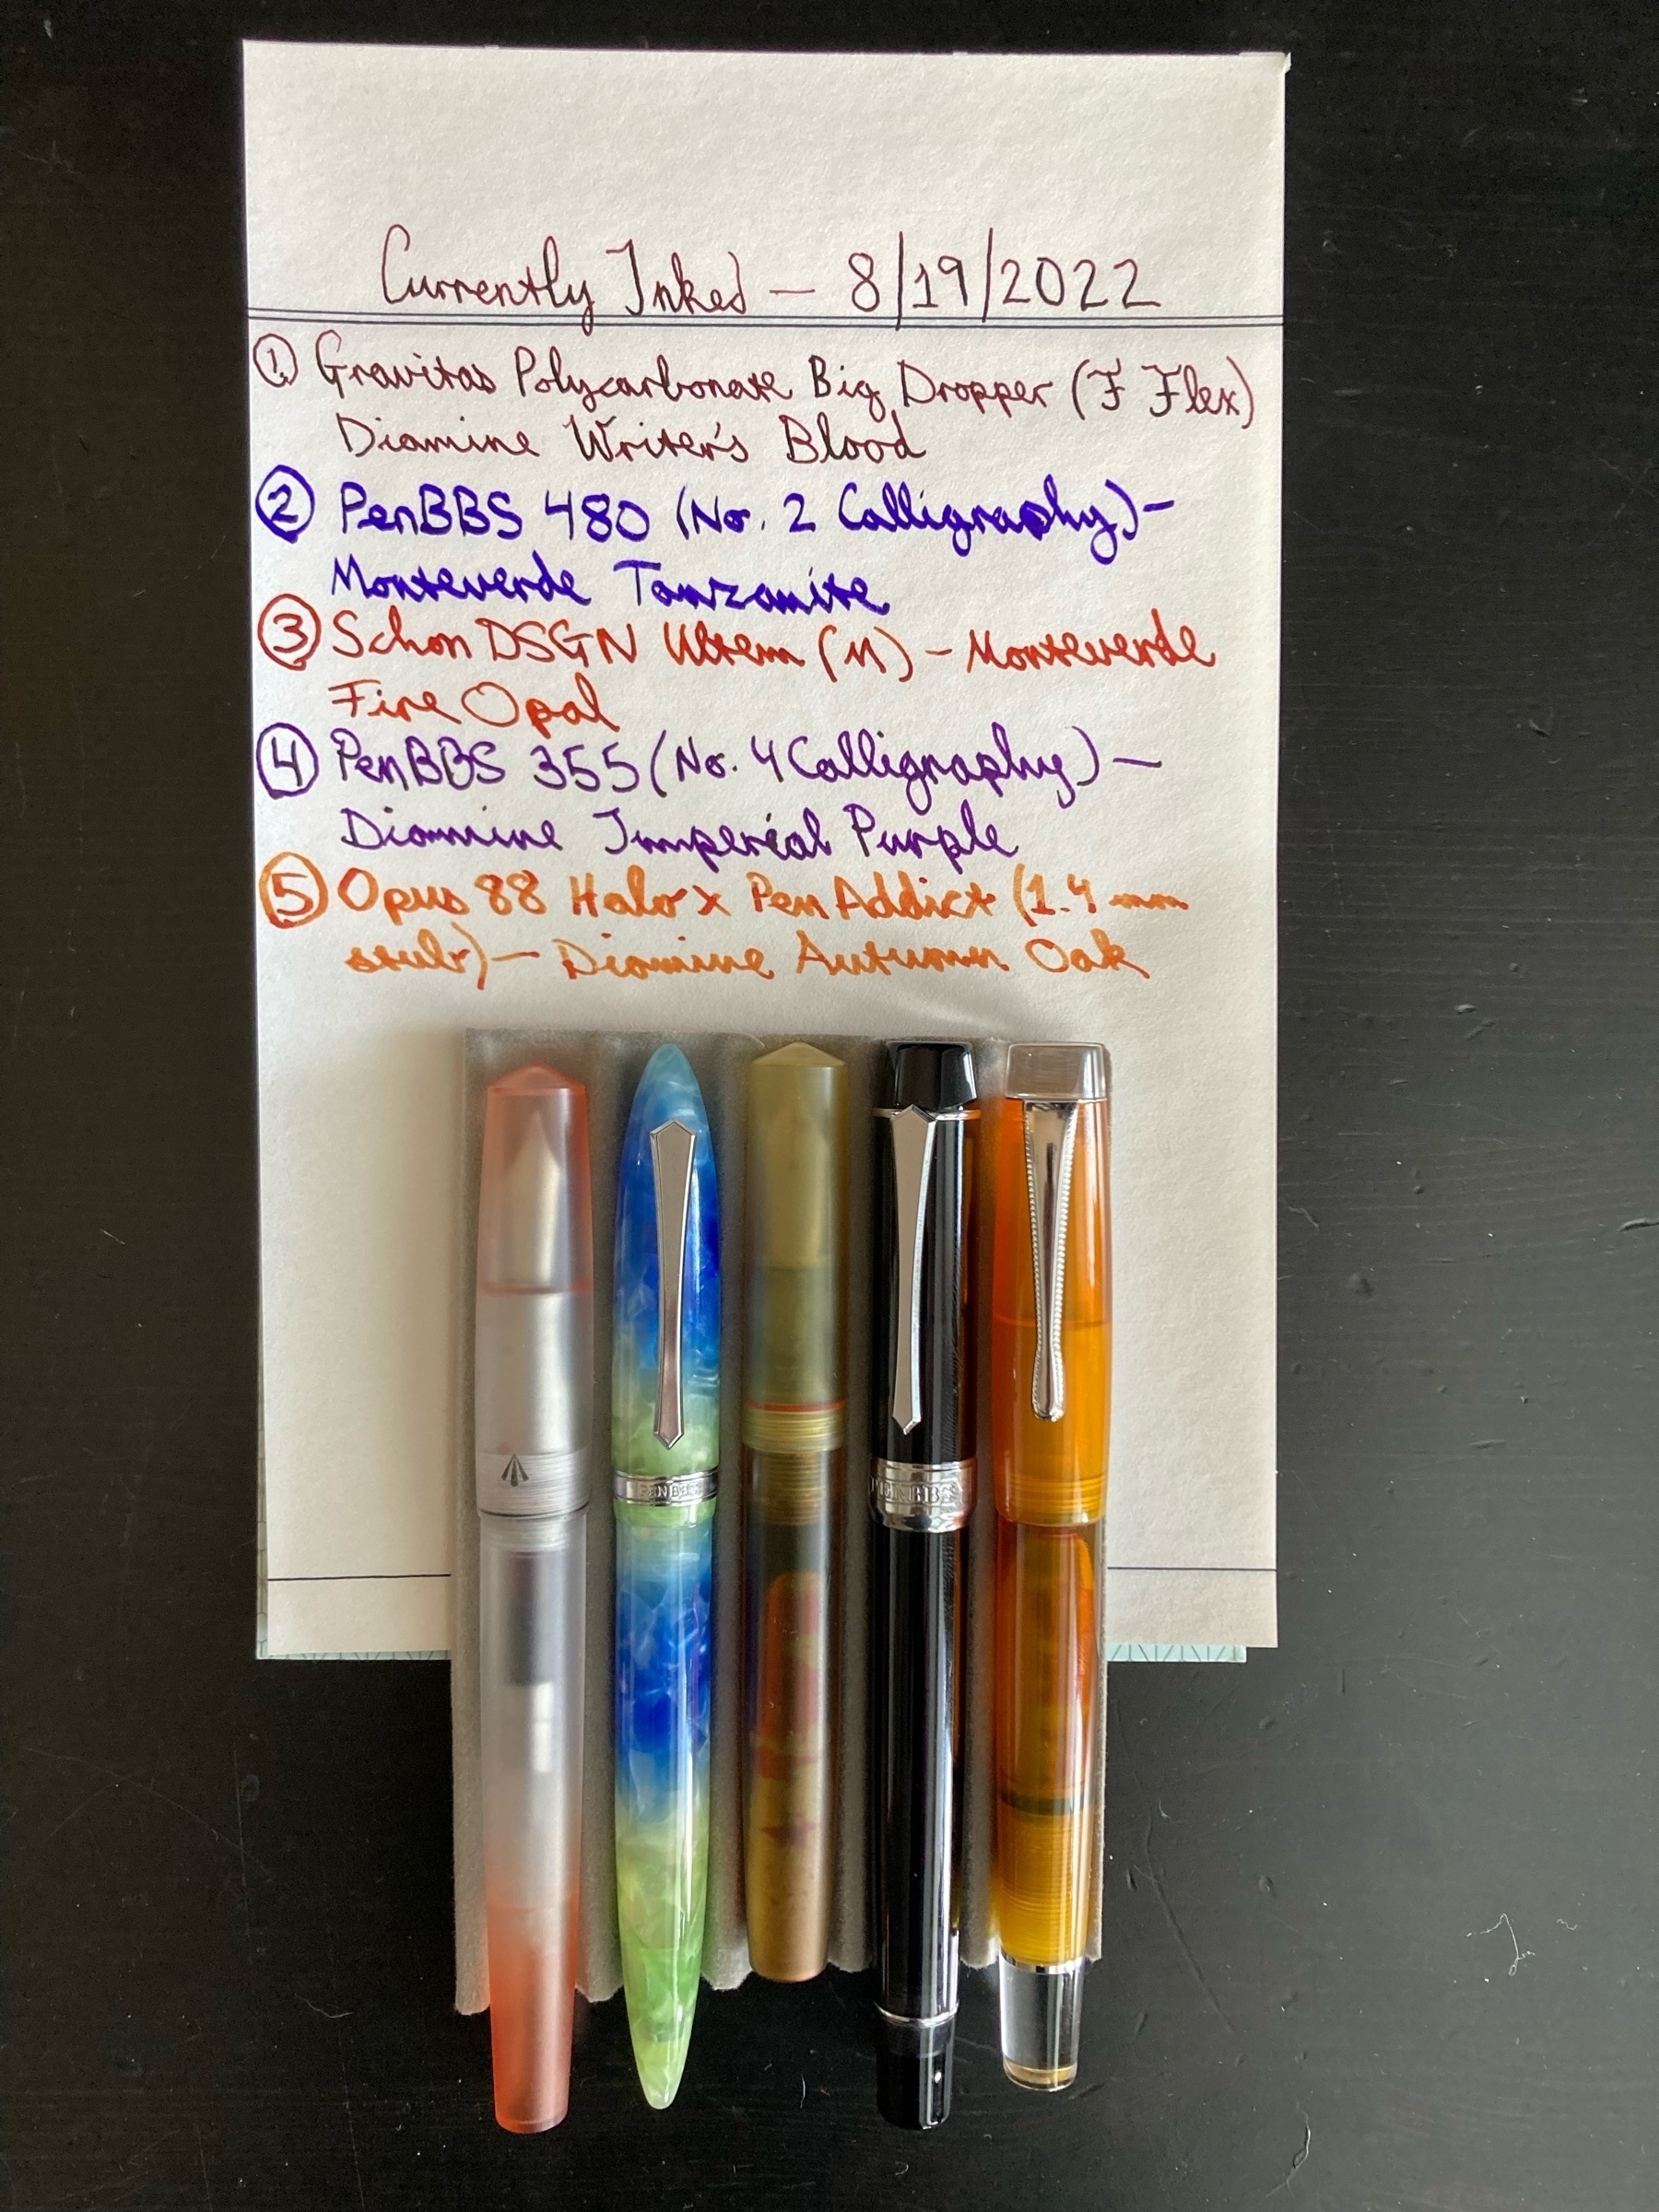 Currently Inked — 8/19/2022
① Gravitas Polycarbonate Big Dropper (F Flex)
Diamine Writer's Blood
② PenBBS 480 (No. 2 Calligraphy) –
Monteverde Tanzanite
③ Schon DSGN Ultem (M) – Monteverde
Fire Opal
④ PenBBS 355 (No. 4 Calligraphy) —
Diamine Imperial Purple
⑤ Opus 88 Halo x Pen Addict (1.4 mm
stub) — Diamine Autumn Oak
PENBBS
PENBBS